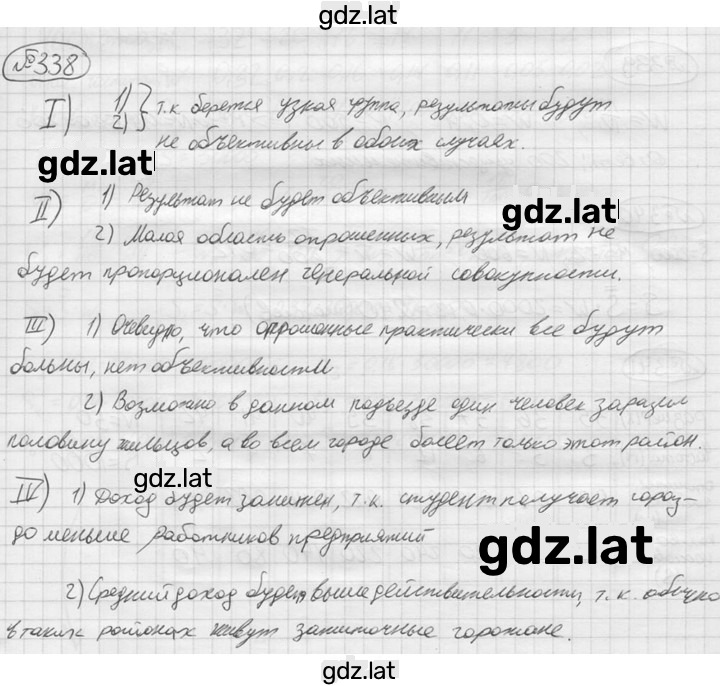 gdz.lat
№338
I) 1) 2) } т.к. берется узкая группа, результаты будут
не объективны в обоих случаях.
gdz.lat
II) 1) Результат не будет объективным
gdz.lat
2) Малая область опрошенных, результат не
будет пропорционален генеральной совокупности.
III) 1) Очевидно, что опрошенные практически все будут
больны, нет объективности
2) Возможно в данном подъезде один человек заразил
половину жильцов, а во всем городе болеет только этот район.
gdz.lat
IV) 1) Доход будет занижен, т.к. студент получает гораз-
до меньше работников предприятий
gdz.lat
2) Средний доход будет выше действительности, т.к. обычно
в таких районах живут зажиточные горожане.
gdz.lat